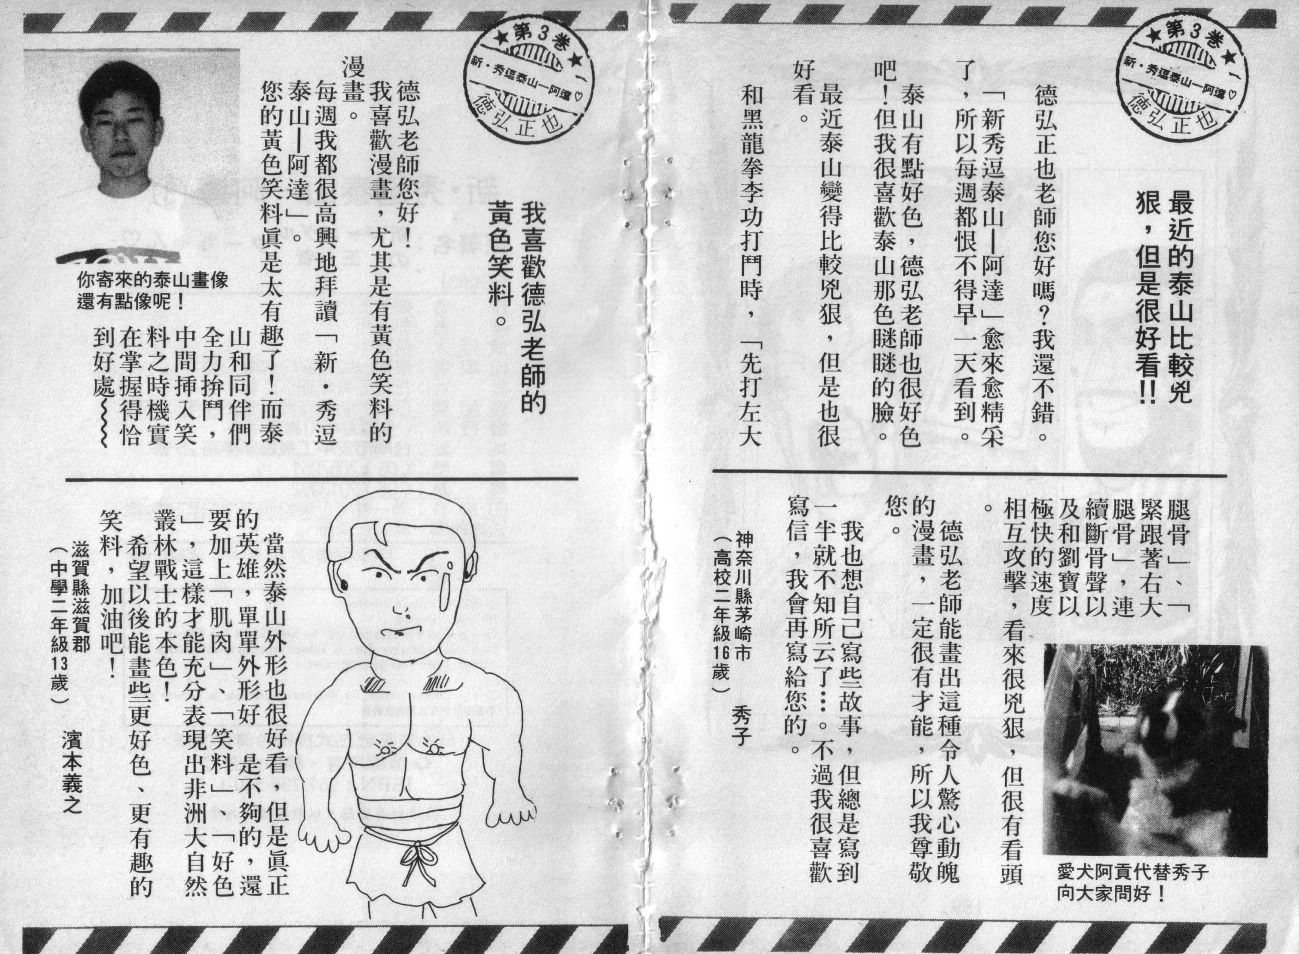 ★第3巻★
新・秀逗泰山—阿達♡
德弘正也
最近的泰山比較兇
狠，但是很好看!!
德弘正也老師您好嗎？我還不錯。
「新秀逗泰山—阿達」愈來愈精采
了，所以每週都恨不得早一天看到。
泰山有點好色，德弘老師也很好色
吧！但我很喜歡泰山那色瞇瞇的臉。
最近泰山變得比較兇狠，但是也很
好看。
和黑龍拳李功打鬥時，「先打左大
腿骨」、「
緊跟著右大
腿骨」，連
續斷骨聲以
及和劉寶以
極快的速度
相互攻擊，看來很兇狠，但很有看頭
。
德弘老師能畫出這種令人驚心動魄
的漫畫，一定很有才能，所以我尊敬
您。
我也想自己寫些故事，但總是寫到
一半就不知所云了…。不過我很喜歡
寫信，我會再寫給您的。
神奈川縣茅崎市　秀子
（高校二年級16歲）
愛犬阿貢代替秀子
向大家問好！
★第3巻★
新・秀逗泰山—阿達♡
德弘正也
我喜歡德弘老師的
黃色笑料。
德弘老師您好！
我喜歡漫畫，尤其是有黃色笑料的
漫畫。
每週我都很高興地拜讀「新・秀逗
泰山—阿達」。
您的黃色笑料眞是太有趣了！而泰
山和同伴們
全力拚鬥，
中間挿入笑
料之時機實
在掌握得恰
到好處~~~
你寄來的泰山畫像
還有點像呢！
當然泰山外形也很好看，但是眞正
的英雄，單單外形好　是不夠的，還
要加上「肌肉」、「笑料」、「好色
」，這樣才能充分表現出非洲大自然
叢林戰士的本色！
希望以後能畫些更好色、更有趣的
笑料，加油吧！
滋賀縣滋賀郡　濱本義之
（中學二年級13歲）